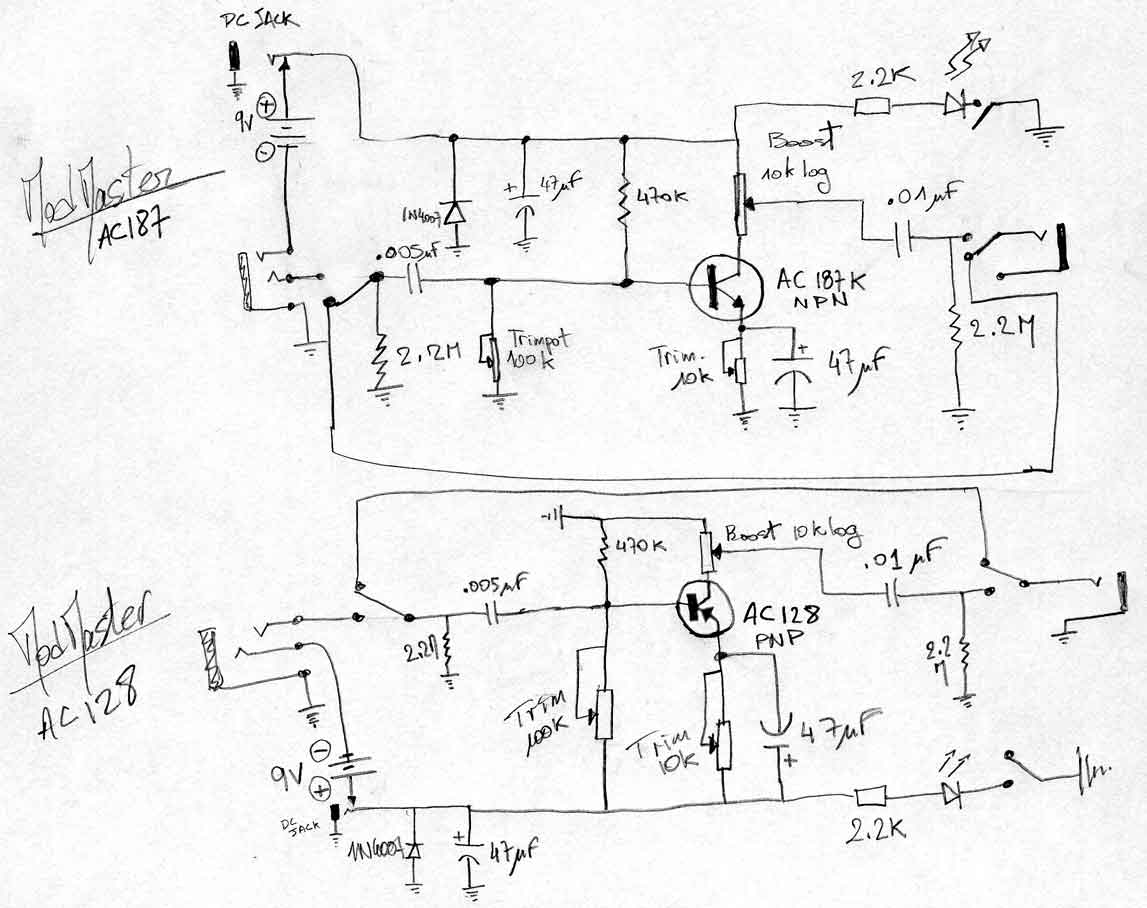 DC JACK
+
9V
-
ModMaster
AC187
1N4007
+
47µF
470K
Boost
10k log
2.2K
.01µF
.005µF
2.2M
Trimpot
100k
AC 187K
NPN
Trim.
10k
+
47µF
2.2M
ModMaster
AC128
.005µF
2.2M
470K
Boost 10k log
.01µF
AC128
PNP
2.2
M
Trim
100k
Trim
10k
47µF
+
-
9V
+
DC
JACK
1N4007
+
47µF
2.2K